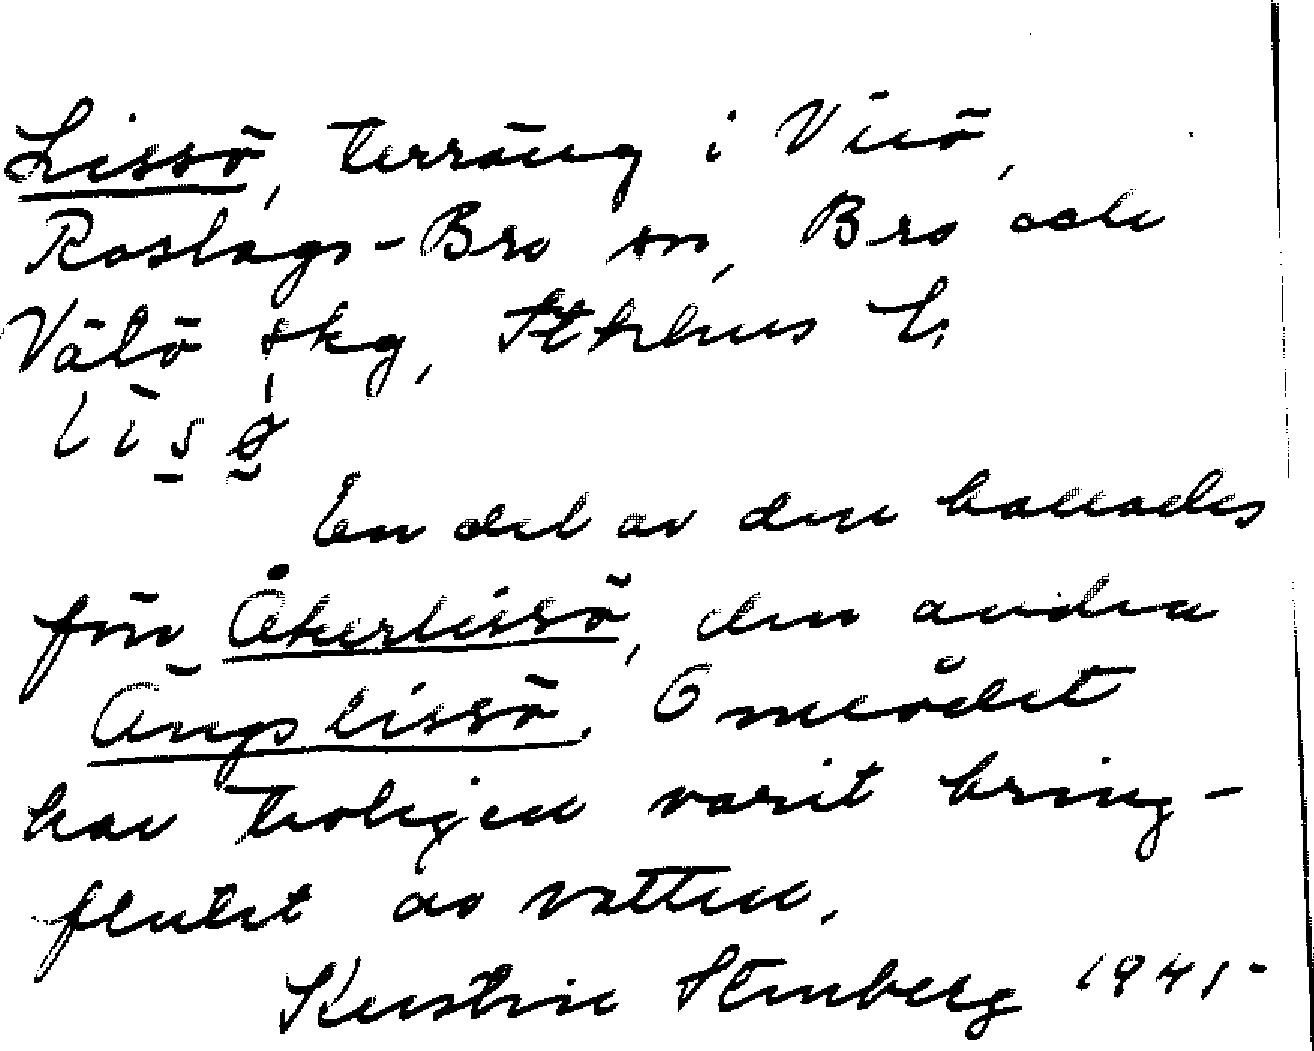 Lissö, terräng i Visö,
Roslags-Bro sn, Bro och
Vätö skg, Sthlms l.
En del av den kallades
förr Åkerlissö, den andra
Ängslissö. Området
har troligen varit kring-
flutet av vatten.
Kerstin Stenberg 1945